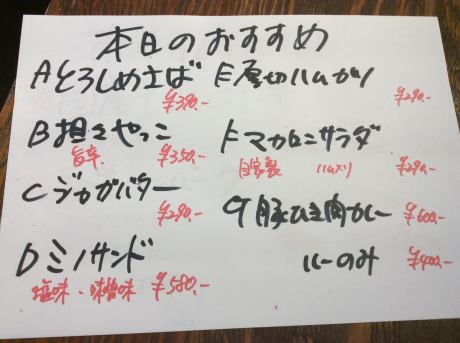 本日のおすすめ
Aとろしめさば
¥390.-
B担々やっこ
旨辛 ¥350.-
Cジャガバター
¥290.-
Dミノサンド
塩味・味噌味 ¥580.-
E厚切ハムカツ
¥290.-
Fマカロニサラダ
自家製 ハム入り ¥290.-
G豚ひき肉カレー ¥600.-
ルーのみ ¥400.-